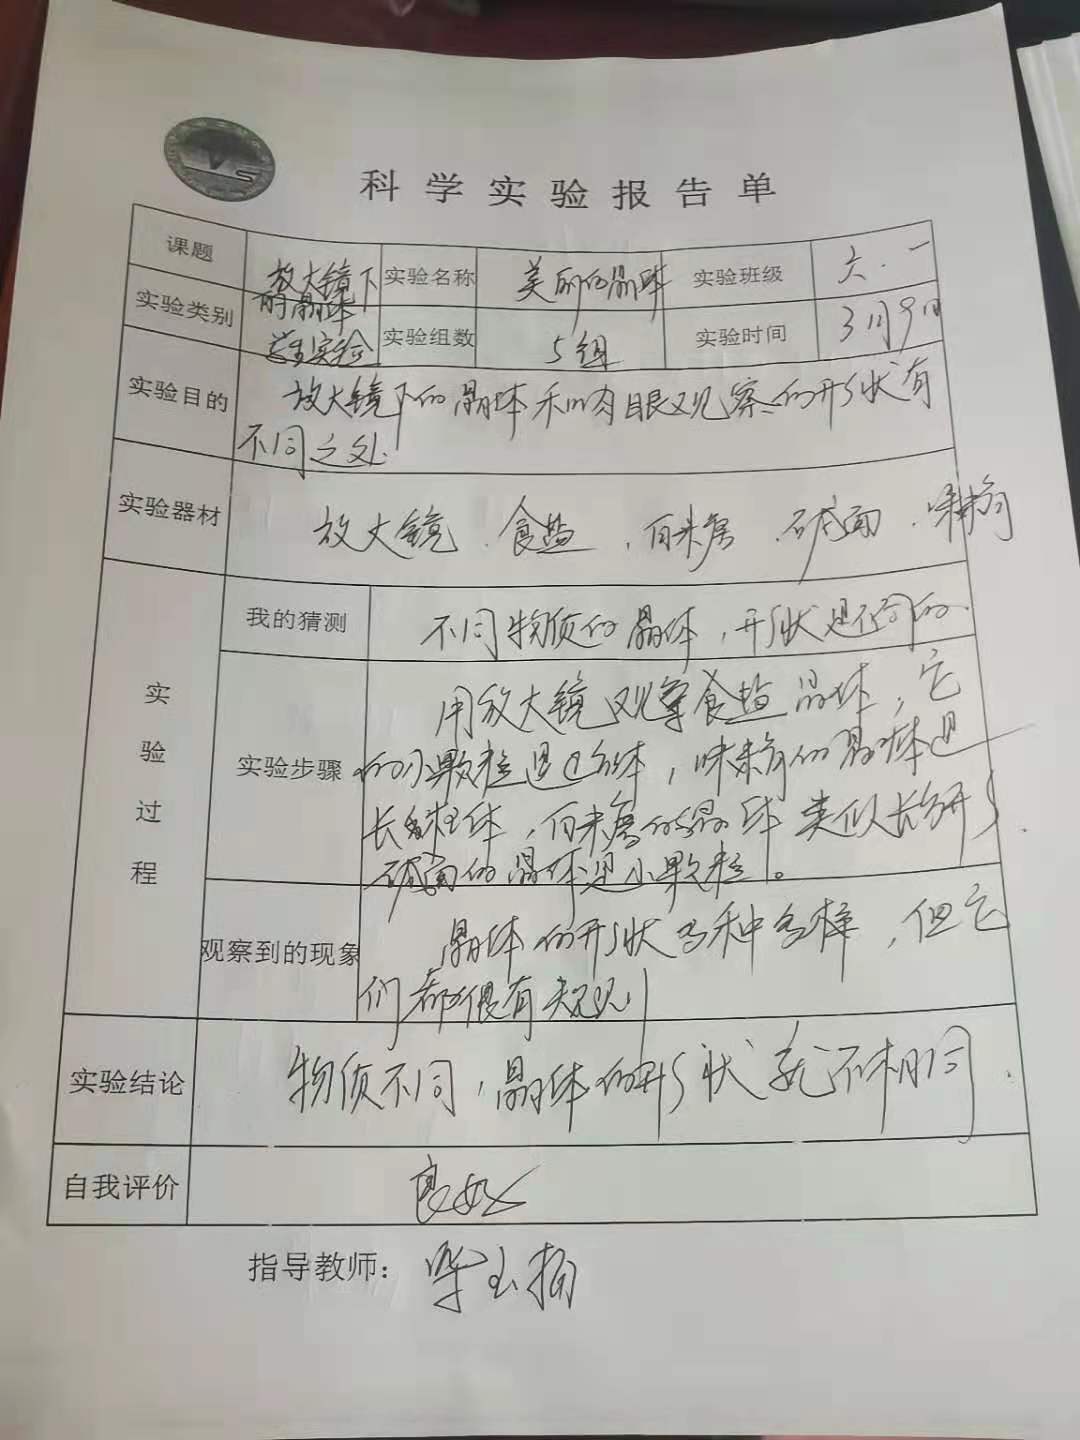 科学实验报告单
课题 放大镜下的晶体 实验名称 美丽的晶体 实验班级 六.一
实验类别 学生实验 实验组数 5组 实验时间 3月9日
实验目的 放大镜下的晶体和肉眼观察的形状有
不同之处.
实验器材 放大镜、食盐、白糖、碱面、味精
实验过程
我的猜测 不同物质的晶体,形状是不同的.
实验步骤 用放大镜观察食盐晶体,它
的小颗粒是立方体,味精的晶体是
长柱体,白糖的晶体类似长方形.
碱面的晶体是小颗粒。
观察到的现象 晶体的形状多种多样,但它
们都很有规则
实验结论 物质不同,晶体的形状就不相同.
自我评价 良好
指导教师: 梁玉